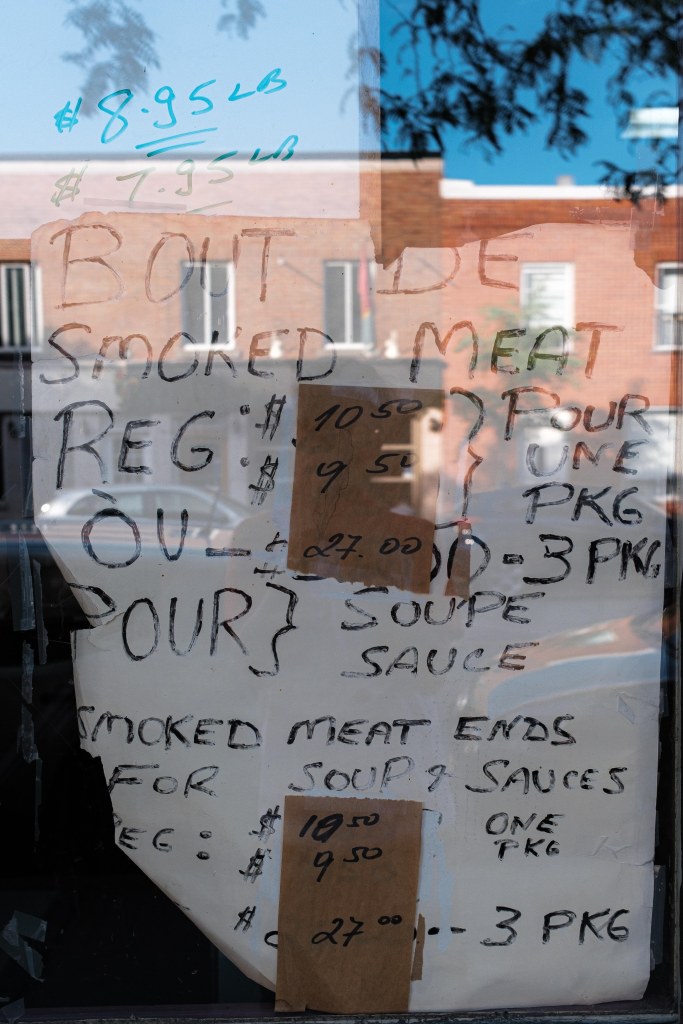 $ 8.95 LB
$ 7.95 LB
BOUT DE
SMOKED MEAT
REG: $ 10 50 } POUR
$ 9 50 } UNE
PKG
ÒU - 27.00 - 3 PKG
POUR } SOUPE
SAUCE
SMOKED MEAT ENDS
FOR SOUP & SAUCES
REG: $ 10 50 ONE
$ 9 50 PKG
$ 27 00 -- 3 PKG